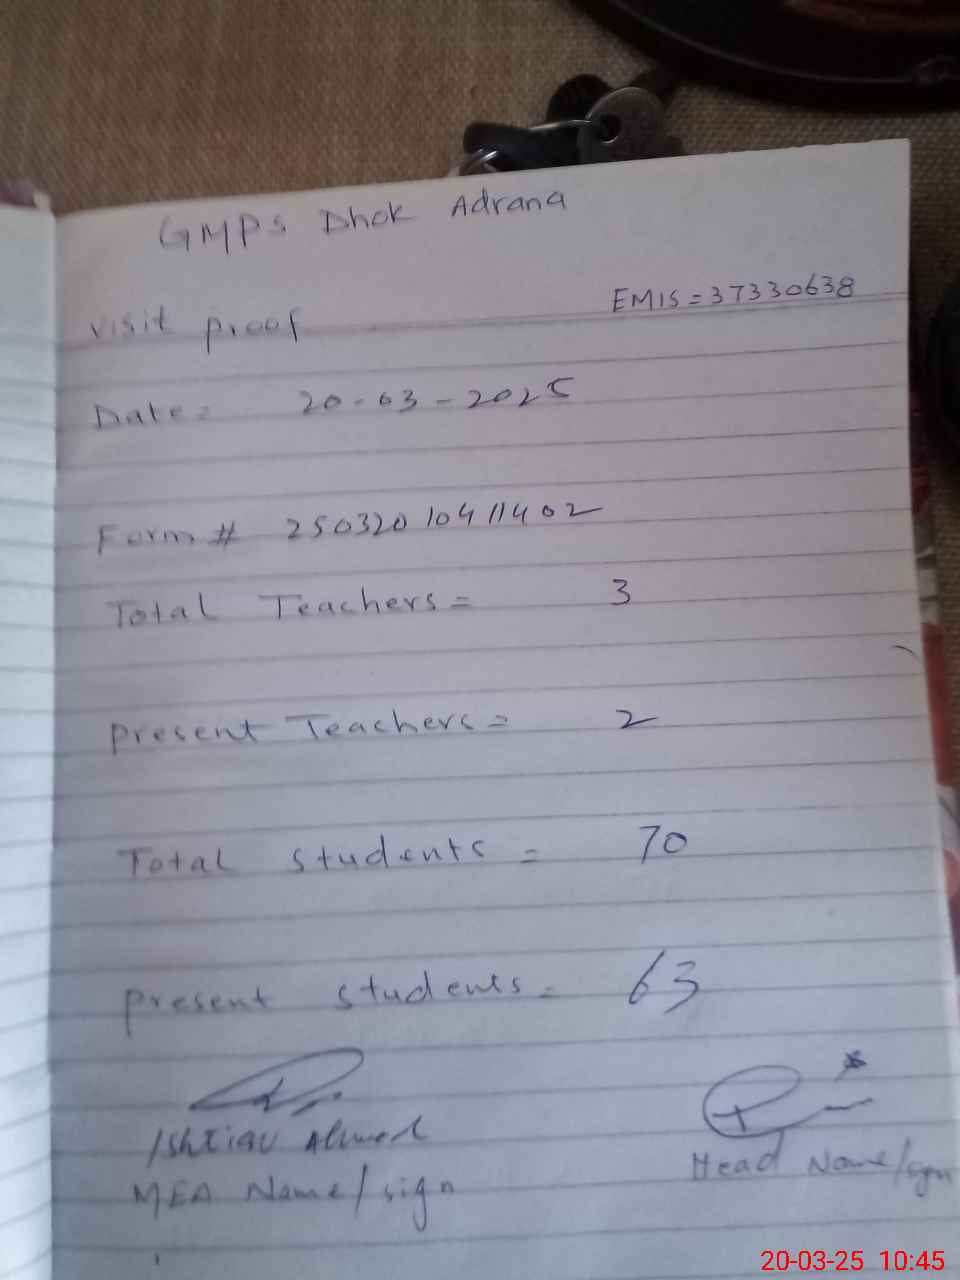 GMPS Dhok Adrana
EMIS = 37330638
visit proof
Date = 20-03-2025
Form # 25032010411402
Total Teachers = 3
Present Teachers = 2
Total students = 70
Present students = 63
Ishtiaq Ahmed
MEA Name/sign
Head Name/sign
20-03-25 10:45